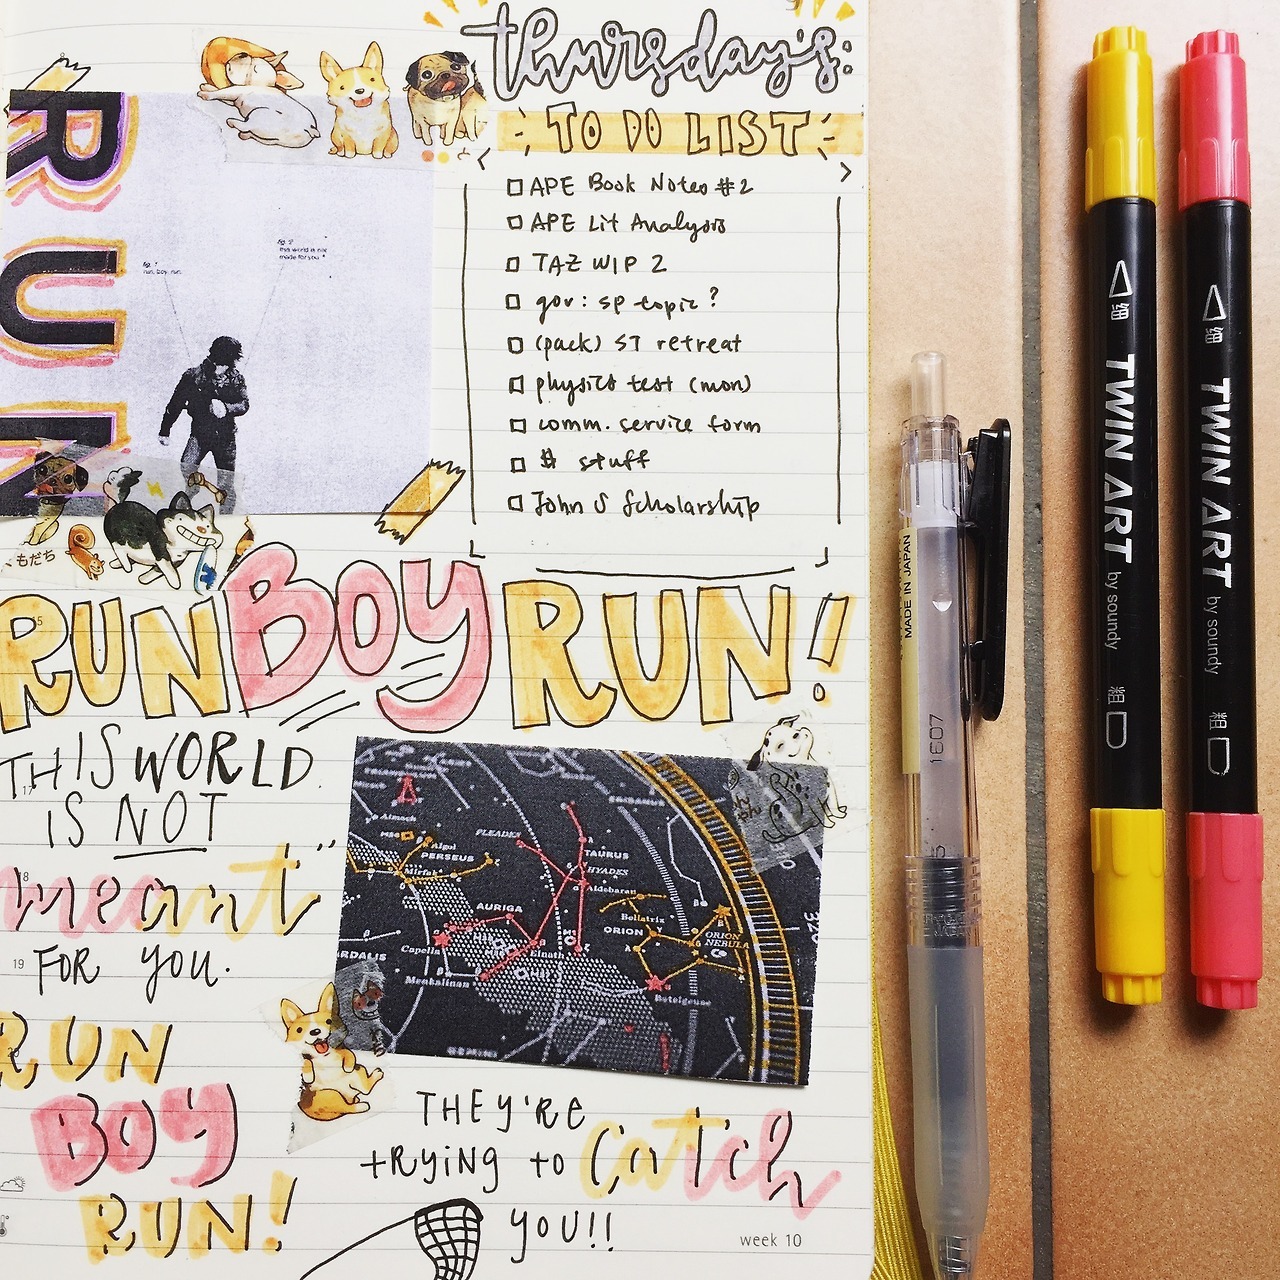 thursday's:
TO DO LIST
APE Book Notes #2
APE Lit Analysis
TAZ WIP 2
gov: sp topic?
(pack) ST retreat
physics test (mon)
comm. service form
$ stuff
John S Scholarship
RUN
fig. 1
run, boy, run.
fig. 2
this world is not
made for you
もだち
RUN BOY RUN!
THIS WORLD
IS NOT
meant
FOR YOU.
RUN
BOY
RUN!
Almach
Algol
PERSEUS
Mirfak
PLEADES
TAURUS
HYADES
Aldebaran
AURIGA
Capella
Menkalinan
Elnath
Bellatrix
ORION
ORION
NEBULA
Betelgeuse
GEMINI
THEY'RE
TRYING TO catch
YOU!!
17
18
19
week 10
MADE IN JAPAN
1607
細
TWIN ART by soundy
粗
細
TWIN ART by soundy
粗